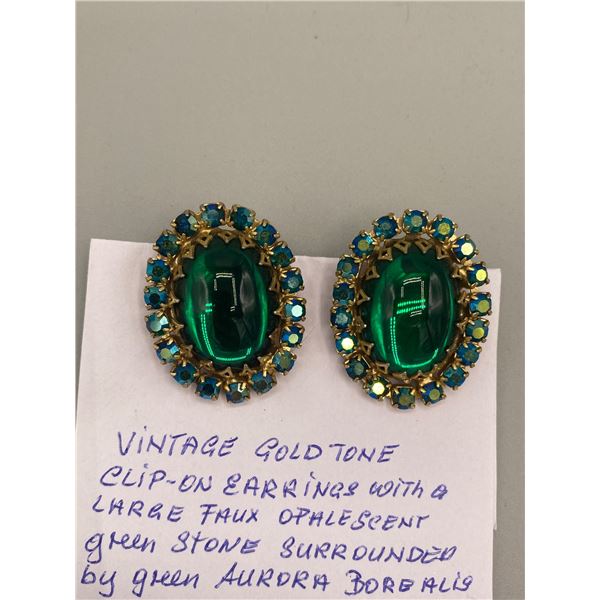 VINTAGE GOLDTONE
CLIP-ON EARRINGS with a
LARGE FAUX OPALESCENT
green STONE SURROUNDED
by green AURORA BOREALIS